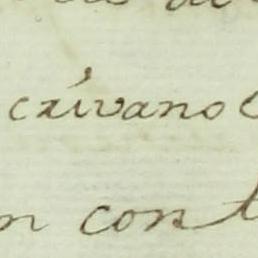 crivano
n cont